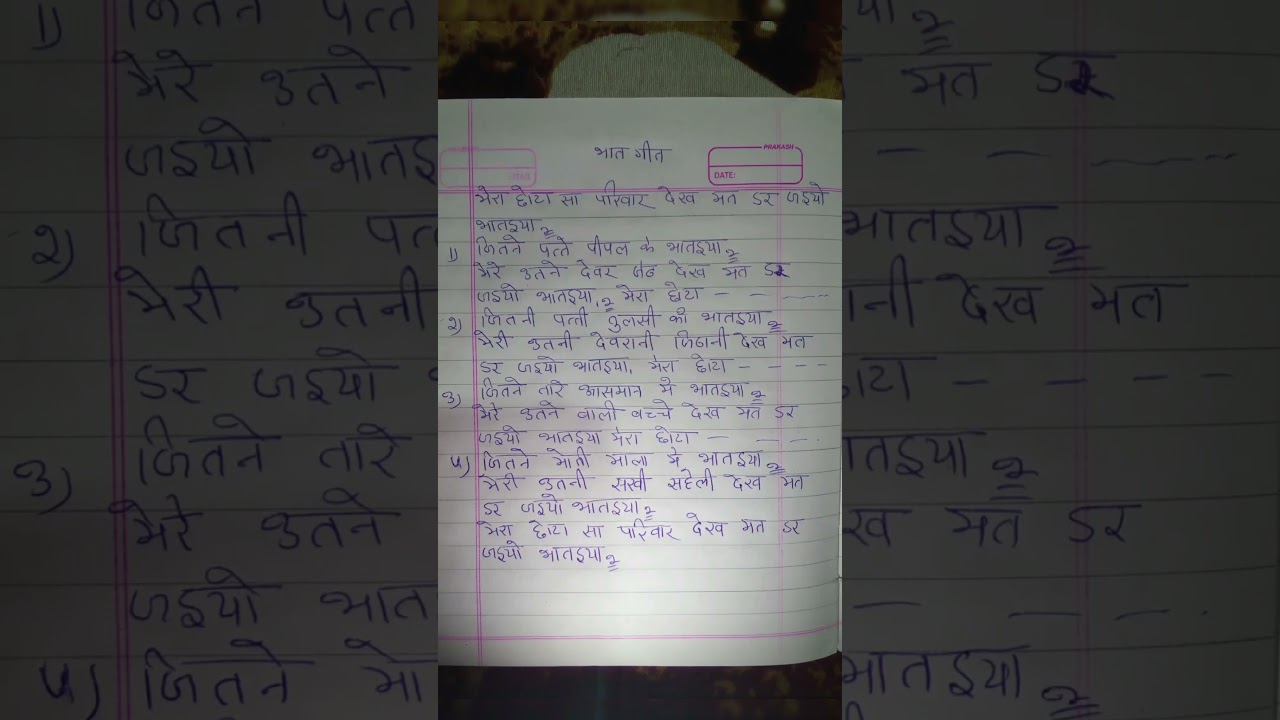 भात गीत
PRAKASH
DATE:
मेरा छोटा सा परिवार देख मत डर जइयो
भातइया २
1) जितने पत्ते पीपल के भातइया २
मेरे उतने देवर जेठ देख मत डर
जइयो भातइया, २ मेरा छोटा - - ----
२) जितनी पत्ती तुलसी की भातइया २
मेरी उतनी देवरानी जिठानी देख मत
डर जइयो भातइया, मेरा छोटा - - - -
3) जितने तारे आसमान मे भातइया २
मेरे उतने बाली बच्चे देख मत डर
जइयो भातइया मेरा छोटा - - - .
५) जितने मोती माला मे भातइया २
मेरी उतनी सखी सहेली देख मत
डर जइयो भातइया २
मेरा छोटा सा परिवार देख मत डर
जइयो भातइया २